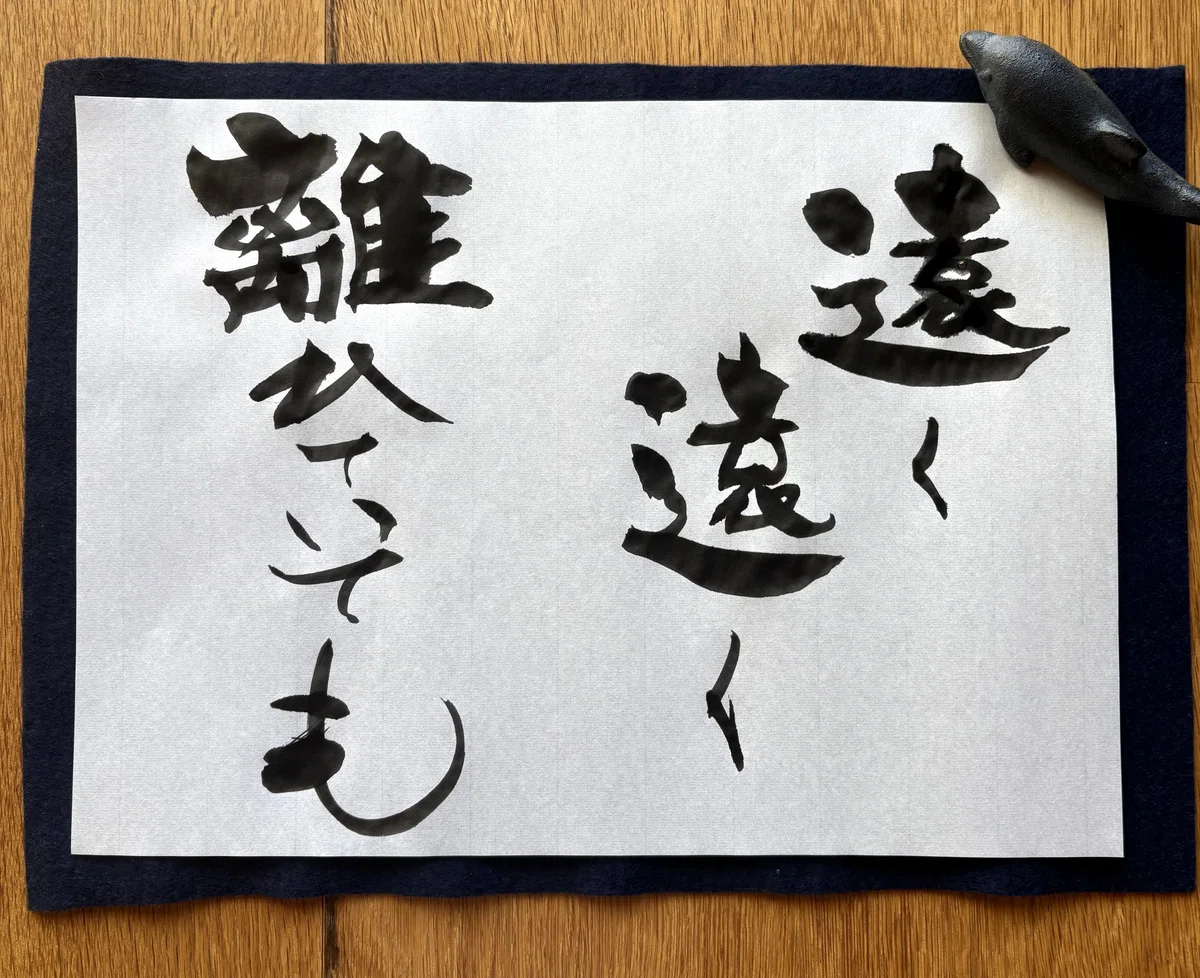 遠く
遠く
離れていても